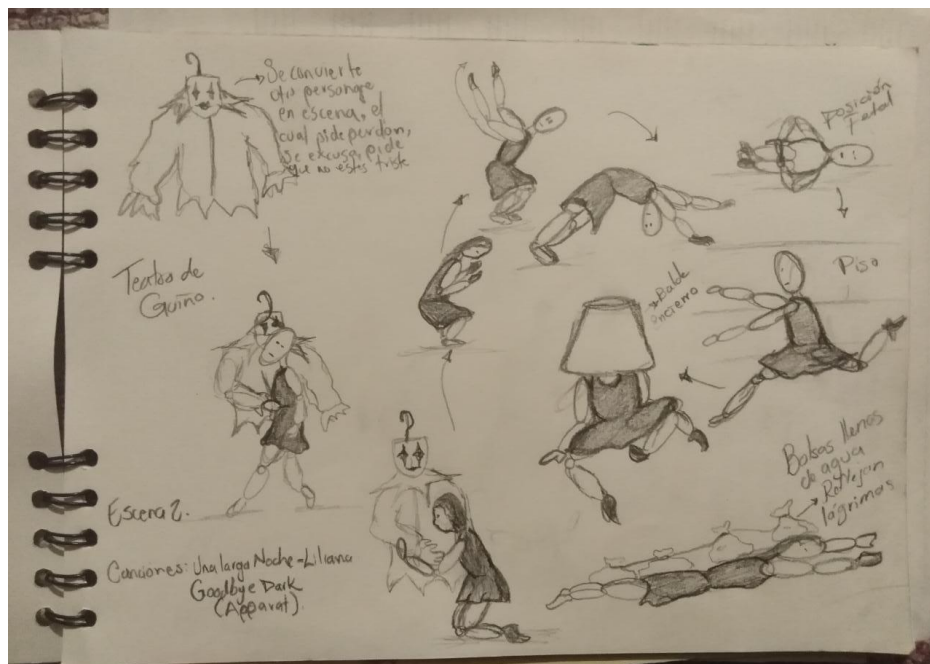 Se convierte
otro personaje
en escena, el
cual pide perdón,
se excusa, pide
que no estes triste
Posición
Fetal
Teatro de
Guiño.
Balde
encierro
Piso
Bolsas llenas
de agua
Reflejan
lágrimas
Escena 2.
Canciones: Una larga Noche - Liliana
Goodbye Dark
(Apparat).